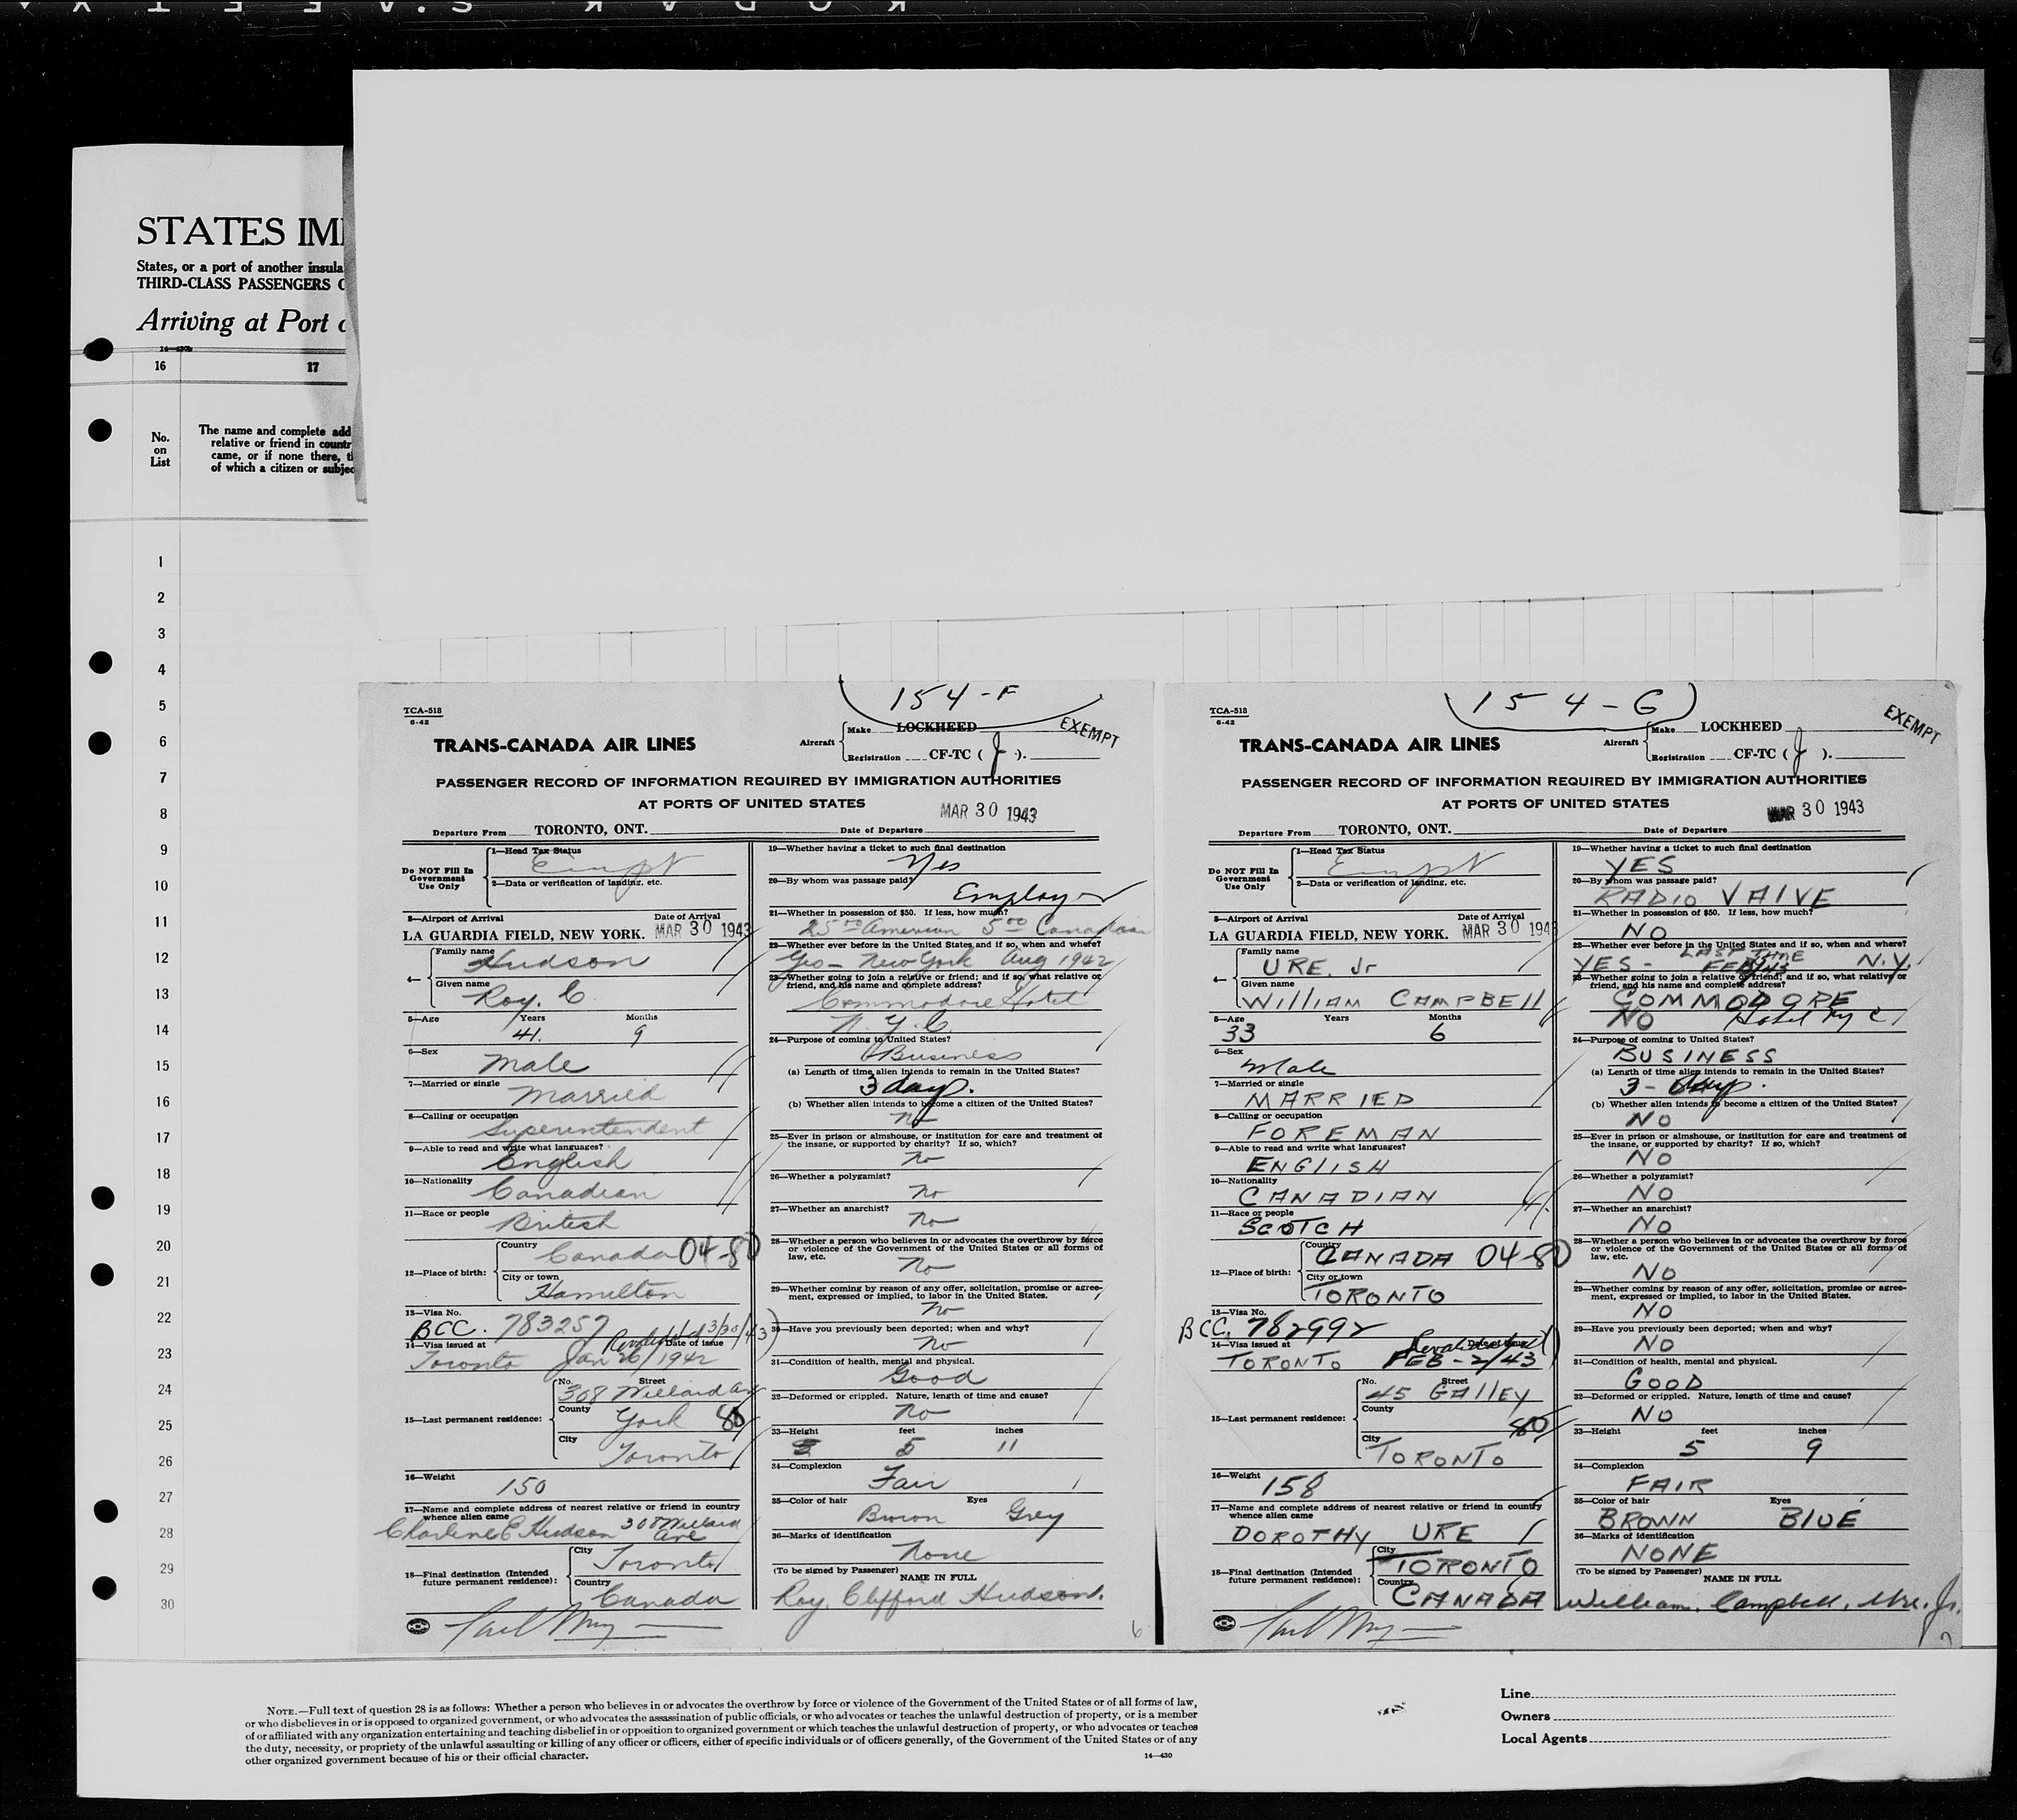 KODAK S.A.F.E.T.Y
STATES IM
States, or a port of another insula
THIRD-CLASS PASSENGERS
Arriving at Port
16 17
No.
on
List
The name and complete add
relative or friend in countr
came, or if none there, t
of which a citizen or subjec
1
2
3
4
5
6
7
8
9
10
11
12
13
14
15
16
17
18
19
20
21
22
23
24
25
26
27
28
29
30
154-F
TCA-513
6-42
TRANS-CANADA AIR LINES
Aircraft Make LOCKHEED
Registration CF-TC ( J ).
EXEMPT
PASSENGER RECORD OF INFORMATION REQUIRED BY IMMIGRATION AUTHORITIES
AT PORTS OF UNITED STATES
MAR 30 1943
Departure From TORONTO, ONT. Date of Departure
Do NOT Fill In
Government
Use Only
1—Head Tax Status
Exempt
2—Data or verification of landing, etc.
3—Airport of Arrival Date of Arrival
LA GUARDIA FIELD, NEW YORK. MAR 30 1943
4— Family name
Hudson
Given name
Roy. C.
5—Age Years Months
41. 9
6—Sex
Male
7—Married or single
Married
8—Calling or occupation
Superintendent
9—Able to read and write what languages?
English
10—Nationality
Canadian
11—Race or people
British
12—Place of birth: Country
Canada 04-80
City or town
Hamilton
13—Visa No.
BCC. 783257 3/30/43
14—Visa issued at Date of issue
Toronto Jan 26/1942
15—Last permanent residence: No. Street
308 Willard Ave
County
York 80
City
Toronto
16—Weight
150
17—Name and complete address of nearest relative or friend in country
whence alien came
Charlene E Hudson 308 Willard
Ave
18—Final destination (Intended
future permanent residence): City
Toronto
Country
Canada
19—Whether having a ticket to such final destination
Yes
20—By whom was passage paid?
Employer
21—Whether in possession of $50. If less, how much?
25.00 American 5.00 Canadian
22—Whether ever before in the United States and if so, when and where?
Yes - New York Aug 1942
23—Whether going to join a relative or friend; and if so, what relative or
friend, and his name and complete address?
Commodore Hotel
N.Y.C.
24—Purpose of coming to United States?
Business
(a) Length of time alien intends to remain in the United States?
3 days.
(b) Whether alien intends to become a citizen of the United States?
No
25—Ever in prison or almshouse, or institution for care and treatment of
the insane, or supported by charity? If so, which?
No
26—Whether a polygamist?
No
27—Whether an anarchist?
No
28—Whether a person who believes in or advocates the overthrow by force
or violence of the Government of the United States or all forms of
law, etc.
No
29—Whether coming by reason of any offer, solicitation, promise or agree-
ment, expressed or implied, to labor in the United States.
No
30—Have you previously been deported; when and why?
No
31—Condition of health, mental and physical.
Good
32—Deformed or crippled. Nature, length of time and cause?
No
33—Height feet inches
5 11
34—Complexion
Fair
35—Color of hair Eyes
Brown Grey
36—Marks of identification
None
(To be signed by Passenger) NAME IN FULL
Roy. Clifford Hudson.
6
154-G
TCA-513
6-42
TRANS-CANADA AIR LINES
Aircraft Make LOCKHEED
Registration CF-TC ( J ).
EXEMPT
PASSENGER RECORD OF INFORMATION REQUIRED BY IMMIGRATION AUTHORITIES
AT PORTS OF UNITED STATES
MAR 30 1943
Departure From TORONTO, ONT. Date of Departure
Do NOT Fill In
Government
Use Only
1—Head Tax Status
Exempt
2—Data or verification of landing, etc.
3—Airport of Arrival Date of Arrival
LA GUARDIA FIELD, NEW YORK. MAR 30 1943
4— Family name
URE. Jr
Given name
WILLIAM CAMPBELL
5—Age Years Months
33 6
6—Sex
Male
7—Married or single
MARRIED
8—Calling or occupation
FOREMAN
9—Able to read and write what languages?
ENGLISH
10—Nationality
CANADIAN
11—Race or people
SCOTCH
12—Place of birth: Country
CANADA 04-80
City or town
TORONTO
13—Visa No.
BCC. 782992
14—Visa issued at
TORONTO FEB-2/43
15—Last permanent residence: No. Street
45 GALLEY
County
80
City
TORONTO
16—Weight
158
17—Name and complete address of nearest relative or friend in country
whence alien came
DOROTHY URE
18—Final destination (Intended
future permanent residence): City
TORONTO
Country
CANADA
19—Whether having a ticket to such final destination
YES
20—By whom was passage paid?
RADIO VALVE
21—Whether in possession of $50. If less, how much?
NO
22—Whether ever before in the United States and if so, when and where?
YES - LAST TIME FEB/43 N.Y.
23—Whether going to join a relative or friend; and if so, what relative or
friend, and his name and complete address?
COMMODORE
NO Hotel NYC
24—Purpose of coming to United States?
BUSINESS
(a) Length of time alien intends to remain in the United States?
3 - days.
(b) Whether alien intends to become a citizen of the United States?
NO
25—Ever in prison or almshouse, or institution for care and treatment of
the insane, or supported by charity? If so, which?
NO
26—Whether a polygamist?
NO
27—Whether an anarchist?
NO
28—Whether a person who believes in or advocates the overthrow by force
or violence of the Government of the United States or all forms of
law, etc.
NO
29—Whether coming by reason of any offer, solicitation, promise or agree-
ment, expressed or implied, to labor in the United States.
NO
30—Have you previously been deported; when and why?
NO
31—Condition of health, mental and physical.
GOOD
32—Deformed or crippled. Nature, length of time and cause?
NO
33—Height feet inches
5 9
34—Complexion
FAIR
35—Color of hair Eyes
BROWN BLUE
36—Marks of identification
NONE
(To be signed by Passenger) NAME IN FULL
William. Campbell. Ure. Jr.
7
NOTE.—Full text of question 28 is as follows: Whether a person who believes in or advocates the overthrow by force or violence of the Government of the United States or of all forms of law,
or who disbelieves in or is opposed to organized government, or who advocates the assassination of public officials, or who advocates or teaches the unlawful destruction of property, or is a member
of or affiliated with any organization entertaining and teaching disbelief in or opposition to organized government or which teaches the unlawful destruction of property, or who advocates or teaches
the duty, necessity, or propriety of the unlawful assaulting or killing of any officer or officers, either of specific individuals or of officers generally, of the Government of the United States or of any
other organized government because of his or their official character.
14—430
Line
Owners
Local Agents